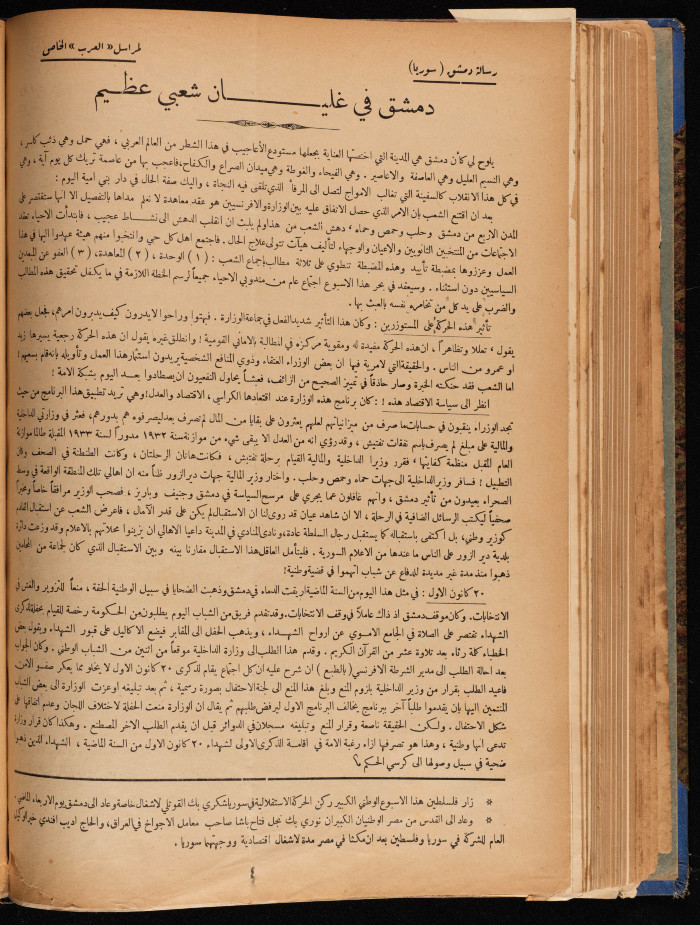 رسالة دمشق (سوريا)
لمراسل «العرب» الخاص
دمشق في غليـــــان شعبي عظيم
يلوح لي كأن دمشق هي المدينة التي اختصها العناية بجعلها مستودع الأعاجيب في هذا الشطر من العالم العربي ، فهي حمل وهي ذئب كاسر ،
وهي النسيم العليل وهي العاصفة والاعاصير . وهي الفيحاء والغوطة وهي ميدان الصراع والكفاح، فاعجب بها من عاصمة تريك كل يوم آية ، وهي
في كل هذا الانقلاب كالسفينة التي تغالب الامواج لتصل الى المرفأ الذي تلقى فيه النجاة ، واليك صفة الحال في دار بني امية اليوم :
بعد ان اقتنع الشعب بان الامر الذي حصل الاتفاق عليه بين الوزارة والافرنسيين هو عقد معاهدة لا نعلم مداها بالتفصيل الا انها ستقتصر على
المدن الاربع من دمشق وحلب وحمص وحماه ، دهش الشعب من هذا ولم يلبث ان انقلب الدهش الى نشـاط عجيب ، فابتدأت الاحياء تعقد
الاجتماعات من المنتخبين الثانويين والاعيان والوجهاء لتأليف هيآت تتولى علاج الحال . فاجتمع اهل كل حي وانتخبوا منهم هيئة عهدوا اليها في هذا
العمل وعززوها بمضبطة تأييد وهذه المضبطة تنطوي على ثلاثة مطالب باجماع الشعب : (١) الوحدة ، (٢) المعاهدة ، (٣) العفو عن المبعدين
السياسيين دون استثناء . وسيعقد في بحر هذا الاسبوع اجتماع عام من مندوبي الاحياء جميعاً لرسم الخطة اللازمة في ما يكفل تحقيق هذه المطالب
والضرب على يد كل من تخامره نفسه بالعبث بها .
تأثير هذه الحركة على المستوزرين : وكان هذا التأثير شديد الفعل في جماعة الوزارة . فبهتوا وراحوا لا يدرون كيف يدبرون امرهم، فجعل بعضهم
يقول ، تعللا وتظاهراً ، ان هذه الحركة مفيدة له ومقوية مركزه في المطالبة بالاماني القومية ! وانطلق غيره يقول ان هذه الحركة رجعية يسيرها زيد
او عمرو من الناس . والحقيقة التي لا مرية فيها ان بعض الوزراء العتقاء وذوي المنافع الشخصية يريدون استثمار هذا العمل وتأويله بانه قام بسعيهم !
اما الشعب فقد حنكته الخبرة وصار حاذقاً في تمييز الصحيح من الزائف، فعبثاً يحاول النفعيون ان يصطادوا بعد اليوم بشبكة الامة !
انظر الى سياسة الاقتصاد هذه ! : كان برنامج هذه الوزارة عند اقتعادها الكراسي ، الاقتصاد والعدل؛ وهي تريد تطبيق هذا البرنامج من حيث
تجد الوزراء ينقبون في حسابات ما صرف من ميزانياتهم لعلهم يعثرون على بقايا من المال لم تصرف بعد ليصرفوه هم بدورهم، فعثر في وزارتي الداخلية
والمالية على مبلغ لم يصرف باسم نفقات تفتيش ، وقد رؤي انه من العدل الا يبقى شيء من موازنة سنة ١٩٣٢ مدوراً لسنة ١٩٣٣ المقبلة طالما موازنة
العام المقبل منظمة كفايتها ، فقرر وزيرا الداخلية والمالية القيام برحلة تفتيش ، فكانت هاتان الرحلتان ، وكانت الطنطنة في الصحف وكان
التطبيل ؛ فسافر وزير الداخلية الى جهات حماه وحمص وحلب . واختار وزير المالية جهات دير الزور ظناً منه ان اهالي تلك المنطقة الواقعة في وسط
الصحراء بعيدون من تأثير دمشق ، وانهم غافلون عما يجري على مرسح السياسة في دمشق وجنيف وباريز ، فصحب الوزير مرافقاً خاصاً ومخبراً
صحفياً ليكتب الرسائل الضافية في الرحلة ، الا ان شاهد عيان قد روى لنا ان الاستقبال لم يكن على قدر الآمال ، فاعرض الشعب عن استقبال القادم
كوزير وطني، بل اكتفى باستقباله كما يستقبل رجل السلطة عادة، ونادى المنادي في المدينة داعيا الاهالي ان يزينوا محلاتهم بالاعلام وقد وزعت دائرة
بلدية دير الزور على الناس ما عندها من الاعلام السورية . فليتأمل العاقل هذا الاستقبال مقارنا بينه وبين الاستقبال الذي كان لجماعة من المحامين
ذهبوا منذ مدة غير مديدة للدفاع عن شباب اتهموا في قضية وطنية!
٢٠ كانون الاول : في مثل هذا اليوم من السنة الماضية اريقت الدماء في دمشق وذهبت الضحايا في سبيل الوطنية الحقة ، منعاً للتزوير والغش في
الانتخابات. وكان موقف دمشق اذ ذاك عاملاً في وقف الانتخابات. وقد تقدم فريق من الشباب اليوم يطلبون من الحكومة رخصة للقيام بحفلة لذكرى
الشهداء تقتصر على الصلاة في الجامع الاموي عن ارواح الشهـداء ، ويذهب الحفل الى المقابر فيضع الاكاليل على قبور الشهداء ويقول بعض
الخطباء كلمة رثاء بعد تلاوة عشر من القرآن الكريم . وقدم هذا الطلب الى وزارة الداخلية موقعاً من اثنين من الشباب الوطني . وكان الجواب
بعد احالة الطلب الى مدير الشرطة الافرنسي (بالطبع) ان شرح عليه ان كل اجتماع يقام لذكرى ٢٠ كانون الاول لا يخلو مما يعكر صفو الامن.
فاعيد الطلب بقرار من وزير الداخلية بلزوم المنع وبلغ هذا المنع الى لجنة الاحتفال بصورة رسمية ، ثم بعد تبليغه اوعزت الوزارة الى بعض الشباب
المنتمين اليها بان يقدموا طلباً آخر ببرنامج يخالف البرنامج الاول ليرفض طلبهم ثم يقال ان الوزارة منعت الحفلة لاختلاف اللجان وعدم اتفاقها على
شكل الاحتفال . ولـكن الحقيقة ناصعة وقرار المنع وتبليغه مسجلان في الدوائر قبل ان يقدم الطلب الاخر المصطنع . وهكذا كان قرار وزارة
تدعي انها وطنية ، وهذا هو تصرفها ازاء رغبة الامة في اقامة الذكرى الاولى لشهداء ٢٠ كانون الاول من السنة الماضية ، الشهداء الذين ذهبوا
ضحية في سبيل وصولها الى كرسي الحكم .
* زار فلسطين هذا الاسبوع الوطني الكبير ركن الحركة الاستقلالية في سوريا شكري بك القوتلي لاشغال خاصة وعاد الى دمشق يوم الاربعاء الماضي.
* وعاد الى القدس من مصر الوطنيان الكبيران نوري بك نجل فتاح باشا صاحب معامل الاجواخ في العراق، والحاج اديب افندي خير الوكيل
العام للشركة في سوريا وفلسطين بعد ان مكثا في مصر مدة لاشغال اقتصادية ووجهتهما سوريا .
٤